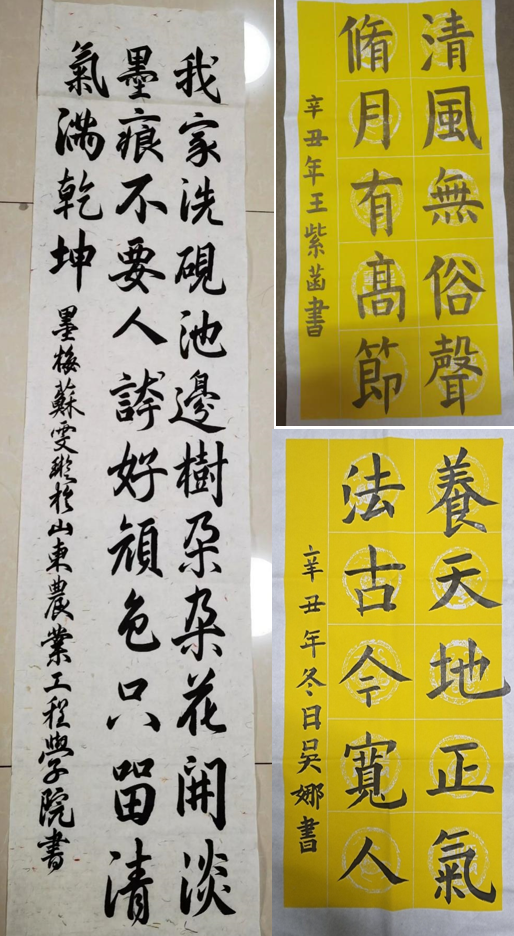 我家洗硯池邊樹朶朶花開淡
墨痕不要人誇好顔色只留清
氣滿乾坤
墨梅蘇雯於山東農業工程學院書
清風無俗聲
脩月有髙節
辛丑年王紫菡書
養天地正氣
法古今寬人
辛丑年冬日吳娜書